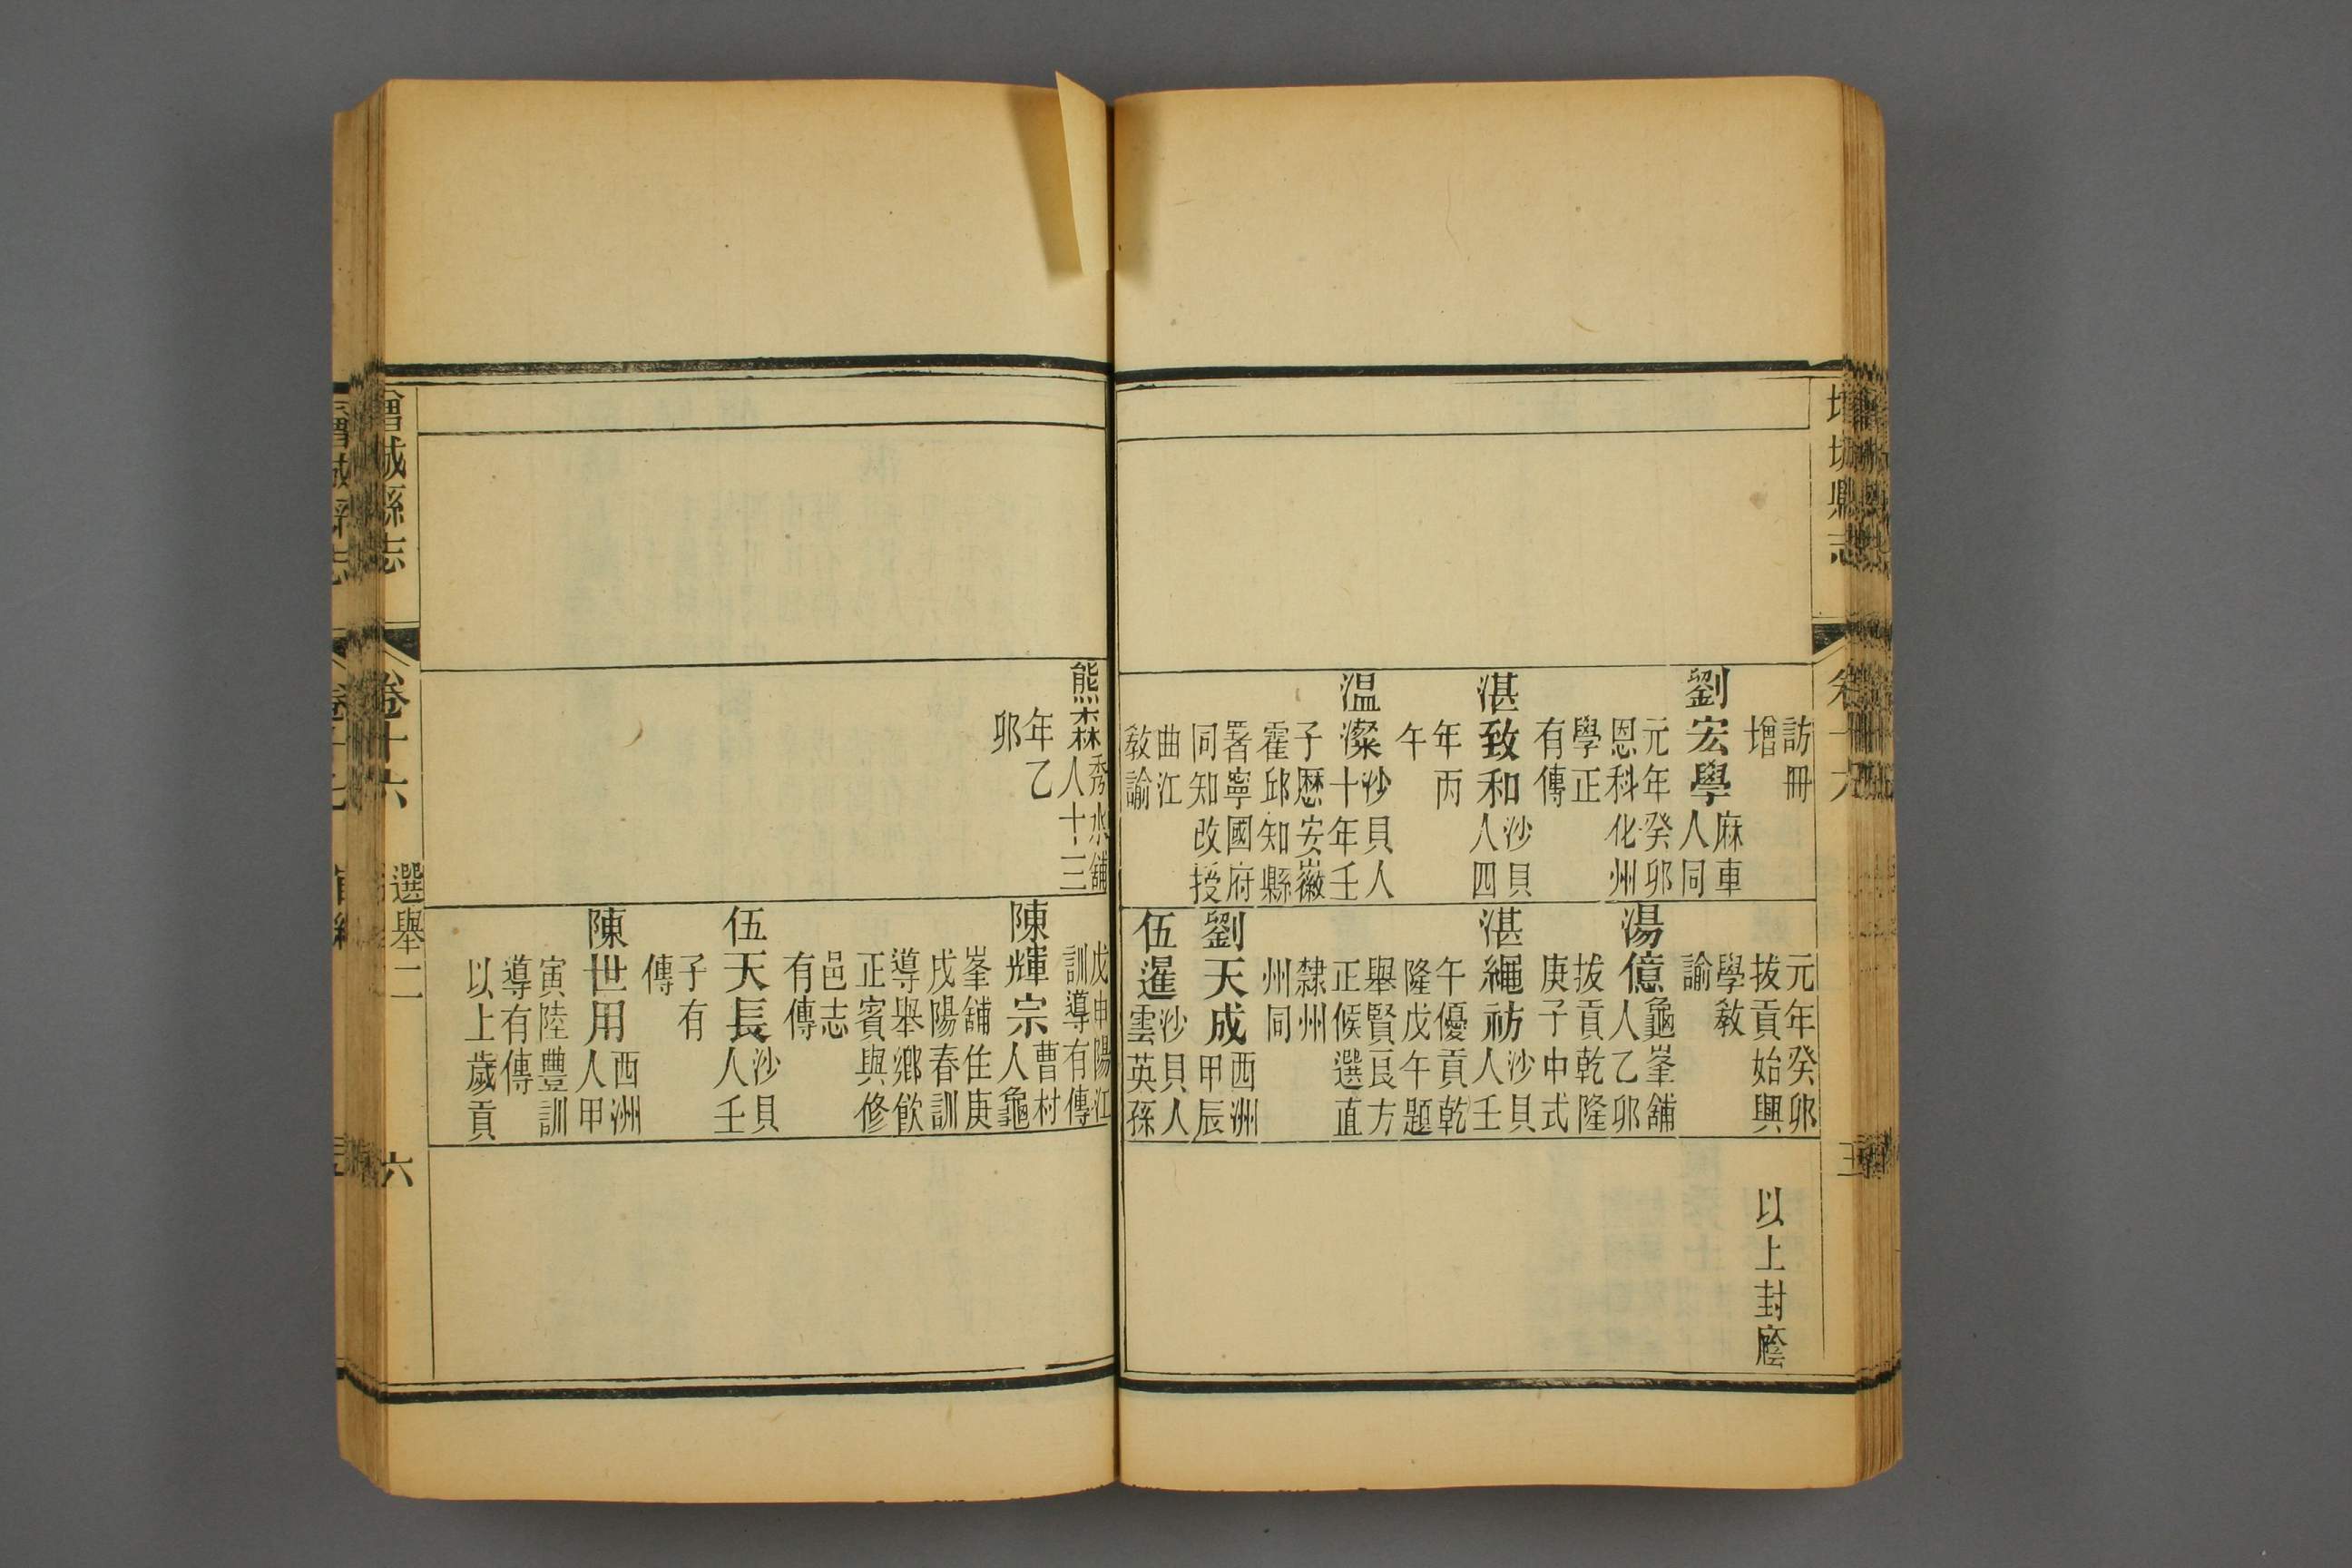 訪冊
增
劉宏學麻車
人同
元年癸卯
恩科化州
學正
有傳
湛致和沙貝
人四
年丙
午
温澯沙貝人
十年壬
子歷安徽
霍邱知縣
署寧國府
同知改授
曲江
教諭
元年癸卯
拔貢始興
學教
諭
湯億龜峯舖
人乙卯
拔貢乾隆
庚子中式
湛繩祊沙貝
人壬
午優貢乾
隆戊午題
舉賢良方
正候選直
隸州
州同
劉天成西洲
甲辰
伍暹沙貝人
雲英孫
以上封廕
熊森秀水舖
人十三
年乙
卯
戊申陽江
訓導有傳
陳輝宗曹村
人龜
峯舖住庚
戌陽春訓
導舉鄉飲
正賓與修
邑志
有傳
伍天長沙貝
人壬
子有
傳
陳世用西洲
人甲
寅陸豐訓
導有傳
以上歲貢
增城縣志
卷十六
選舉二
六